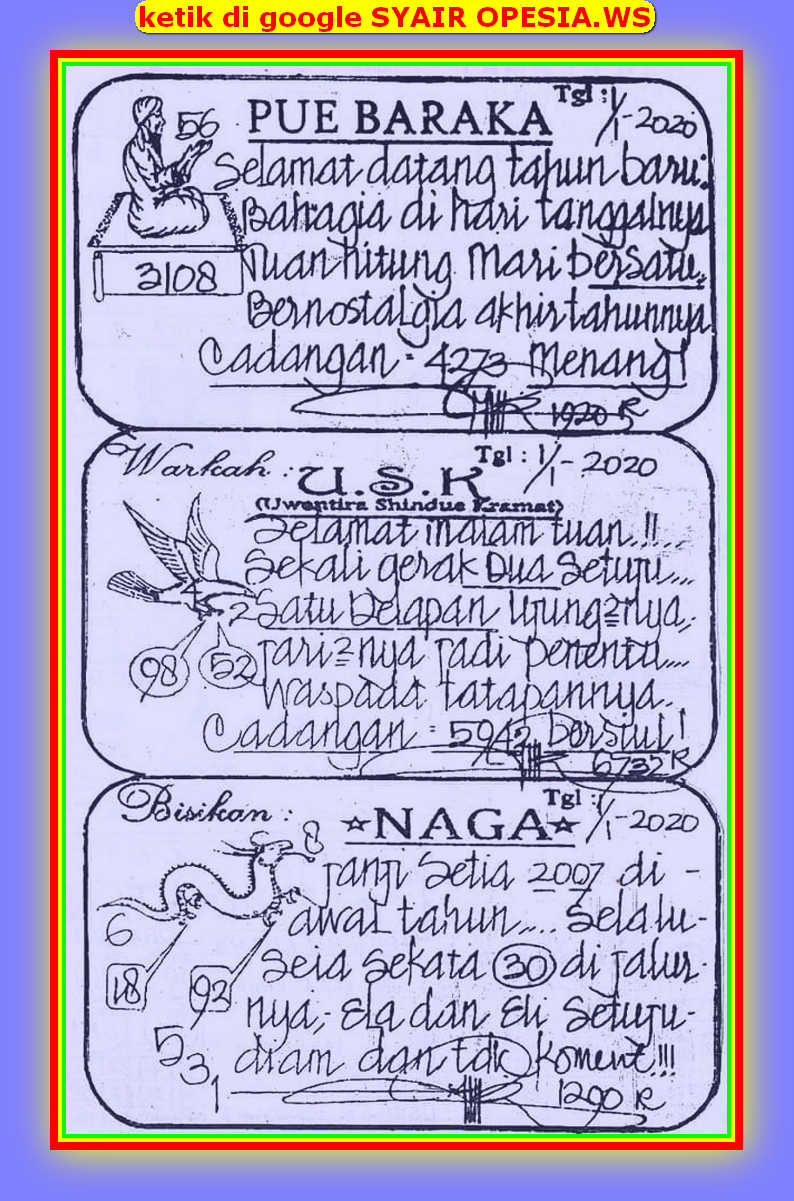 ketik di google SYAIR OPESIA.WS
PUE BARAKA Tgl : 1/1-2020
56
Selamat datang tahun baru:
Bahagia di hari tanggalnya
3108
Tuan hitung mari bersatu..
Bernostalgia akhir tahunnya
Cadangan = 4273 Menang!
1920 R
Warkah : U.S.K Tgl : 1/1-2020
(Uwentira Shindue Kramat)
Selamat malam tuan..!!...
Sekali gerak Dua Setuju....
4 2
Satu Delapan Ujung=nya,.
98 52
Jari=nya jadi penentu....
Waspada tatapannya..
Cadangan : 5942 bersiul!
6732 R
Bisikan : ☆NAGA☆ Tgl : 1/1-2020
8
Janji Setia 2007 di -
6
awal tahun.... Selalu-
18 92
Seia Sekata 30 di jalur-
nya,- Ela dan Eli Setuju-
531
diam dan tdk koment!!!
1290 R